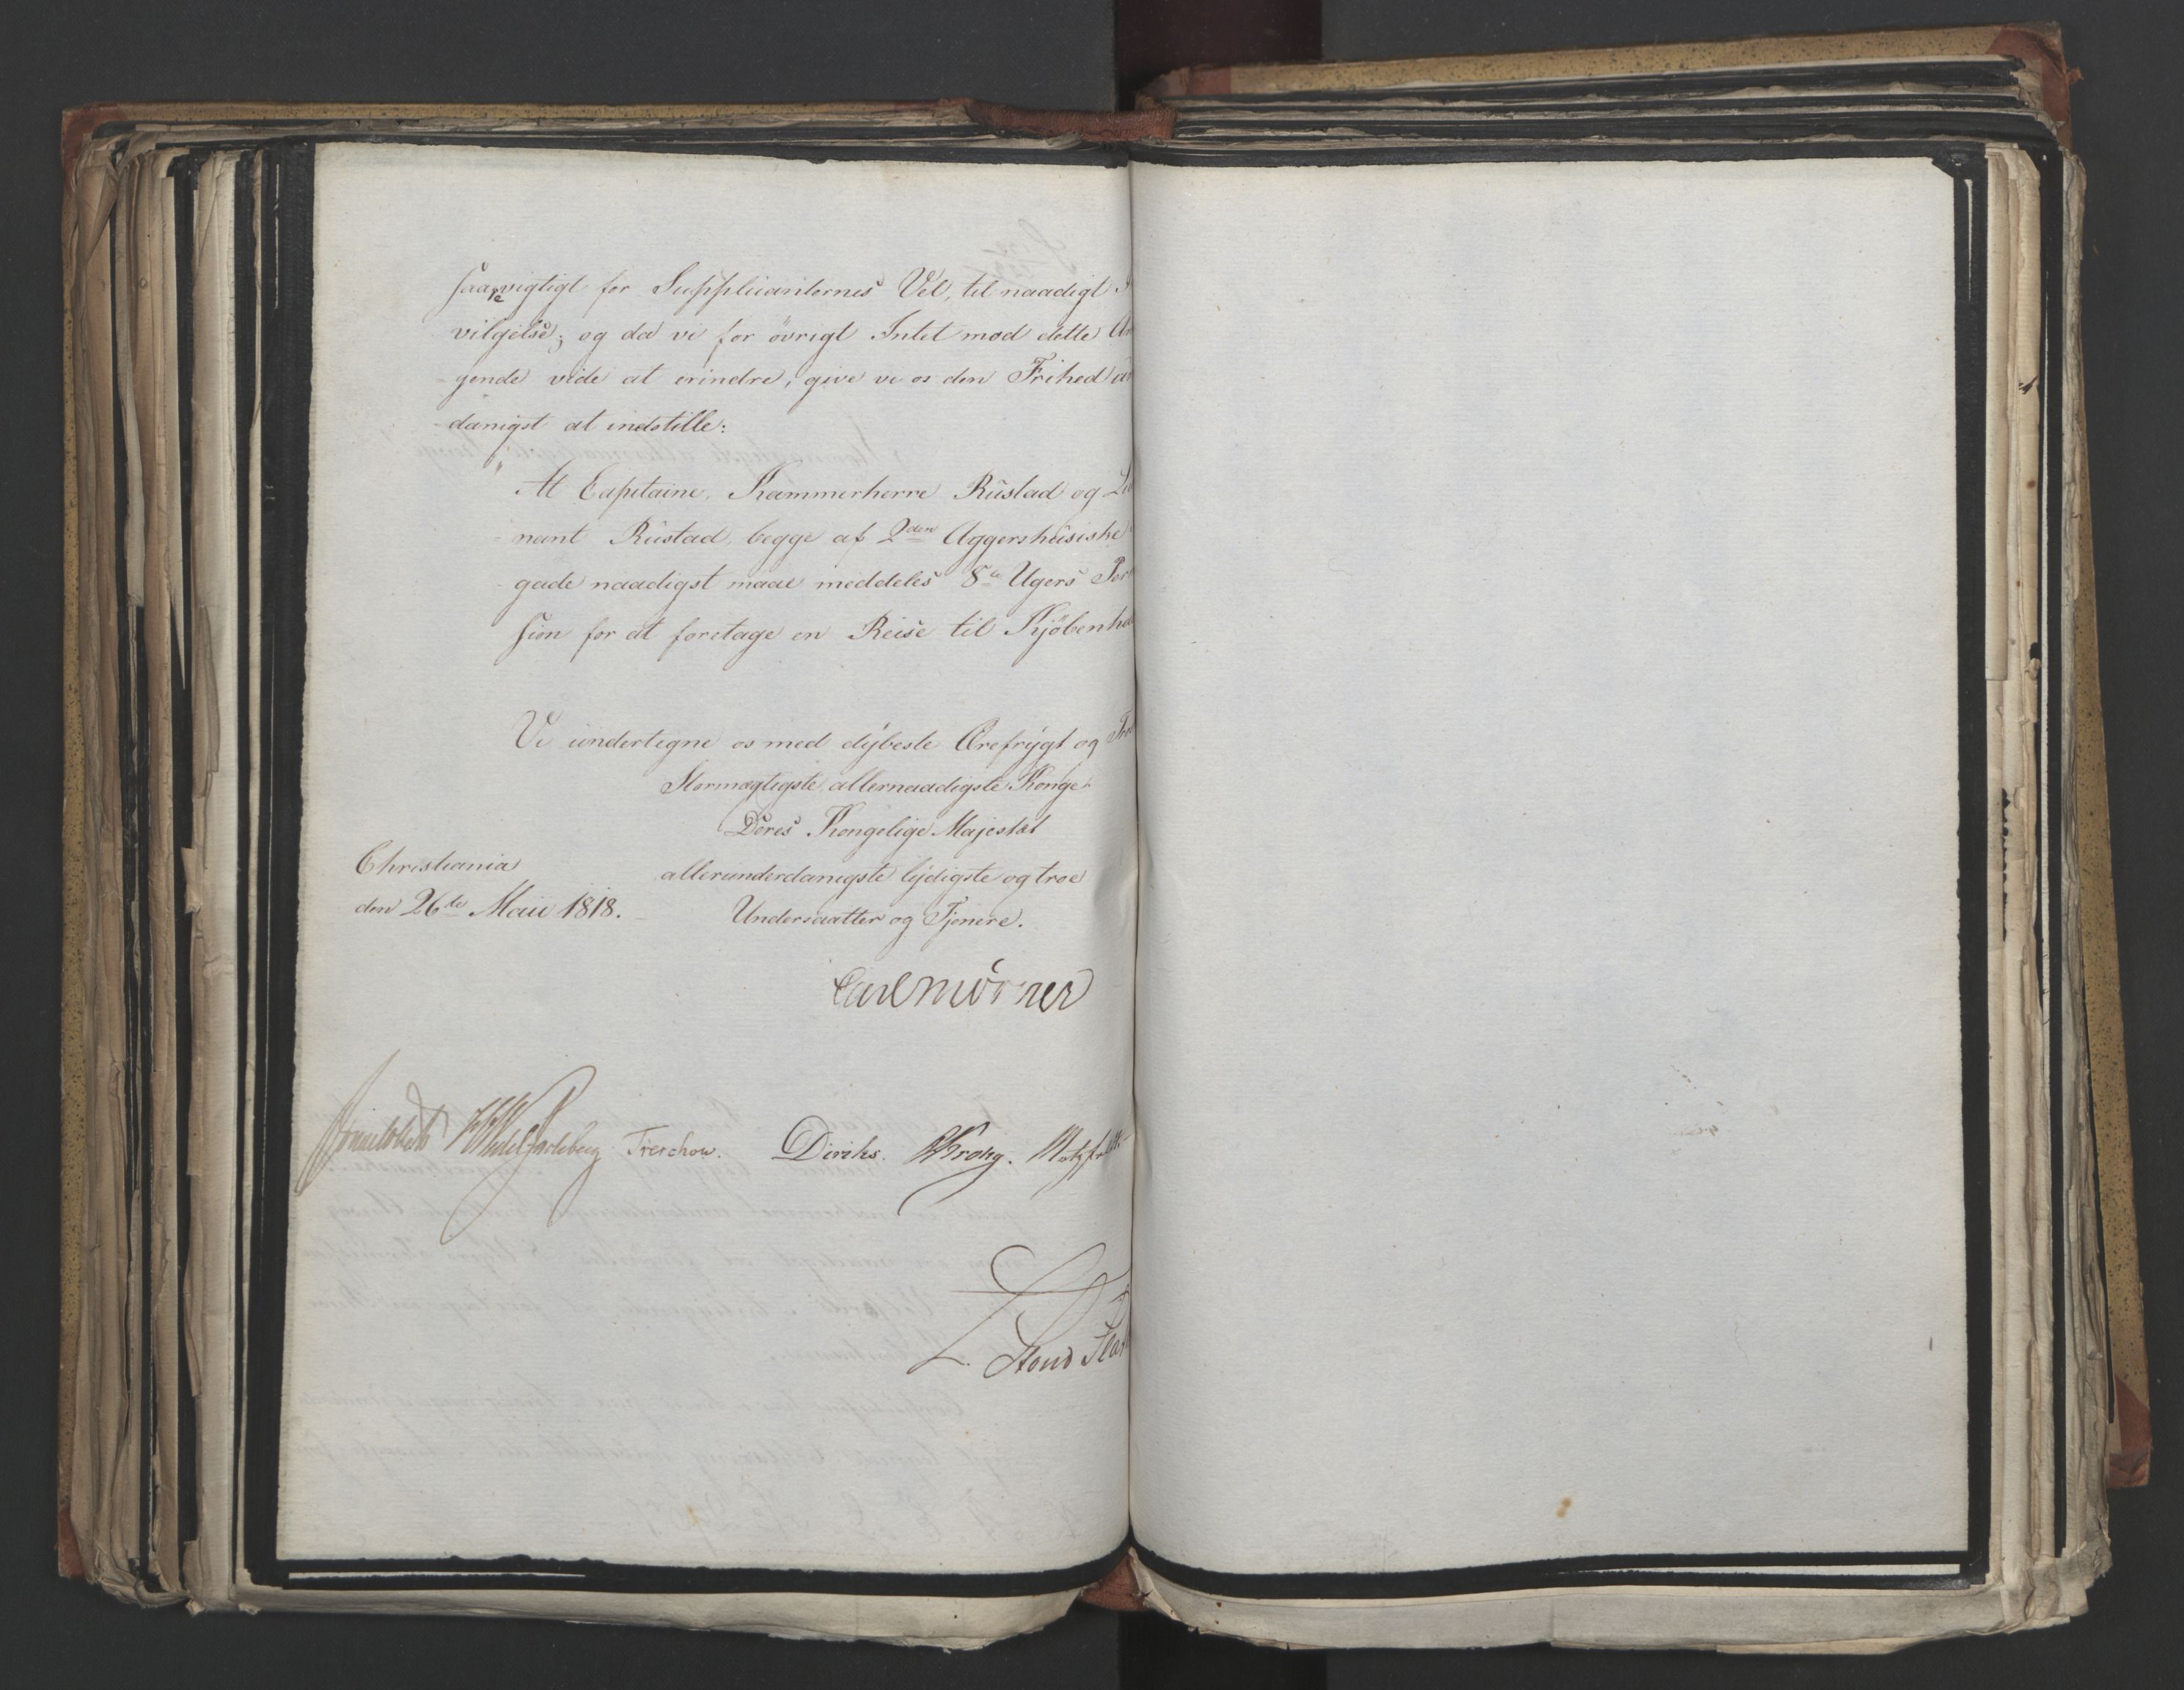 saare vigtigt for Supplicanternes Vel, til naadigt
vilgelse; og da vi for øvrigt Intet mod dette An
gende vide at erindre, give vi os den Frihed un
danigst at indstille:
" At Capitaine, Kammerherre Rustad og Lie
nant Rustad, begge af 2den Aggershusiske
gade naadigst maae meddeles 8te Ugers Per
sion for at foretage en Reise til Kjöbenha
Vi undertegne os med dybeste Ærefrygt og Tro
Stormægtigste allernaadigste Konge
Deres Kongelige Majestæt
allerunderdanigste lydigste og troe
Undersaatter og Tjenere.
Christiania
den 26de Maii 1818.
Carl Mörner
Sommerhielm HWedel Jarlsberg Treschow. Diriks. PKrohg. Motzfeldt
L. Stoud Plat